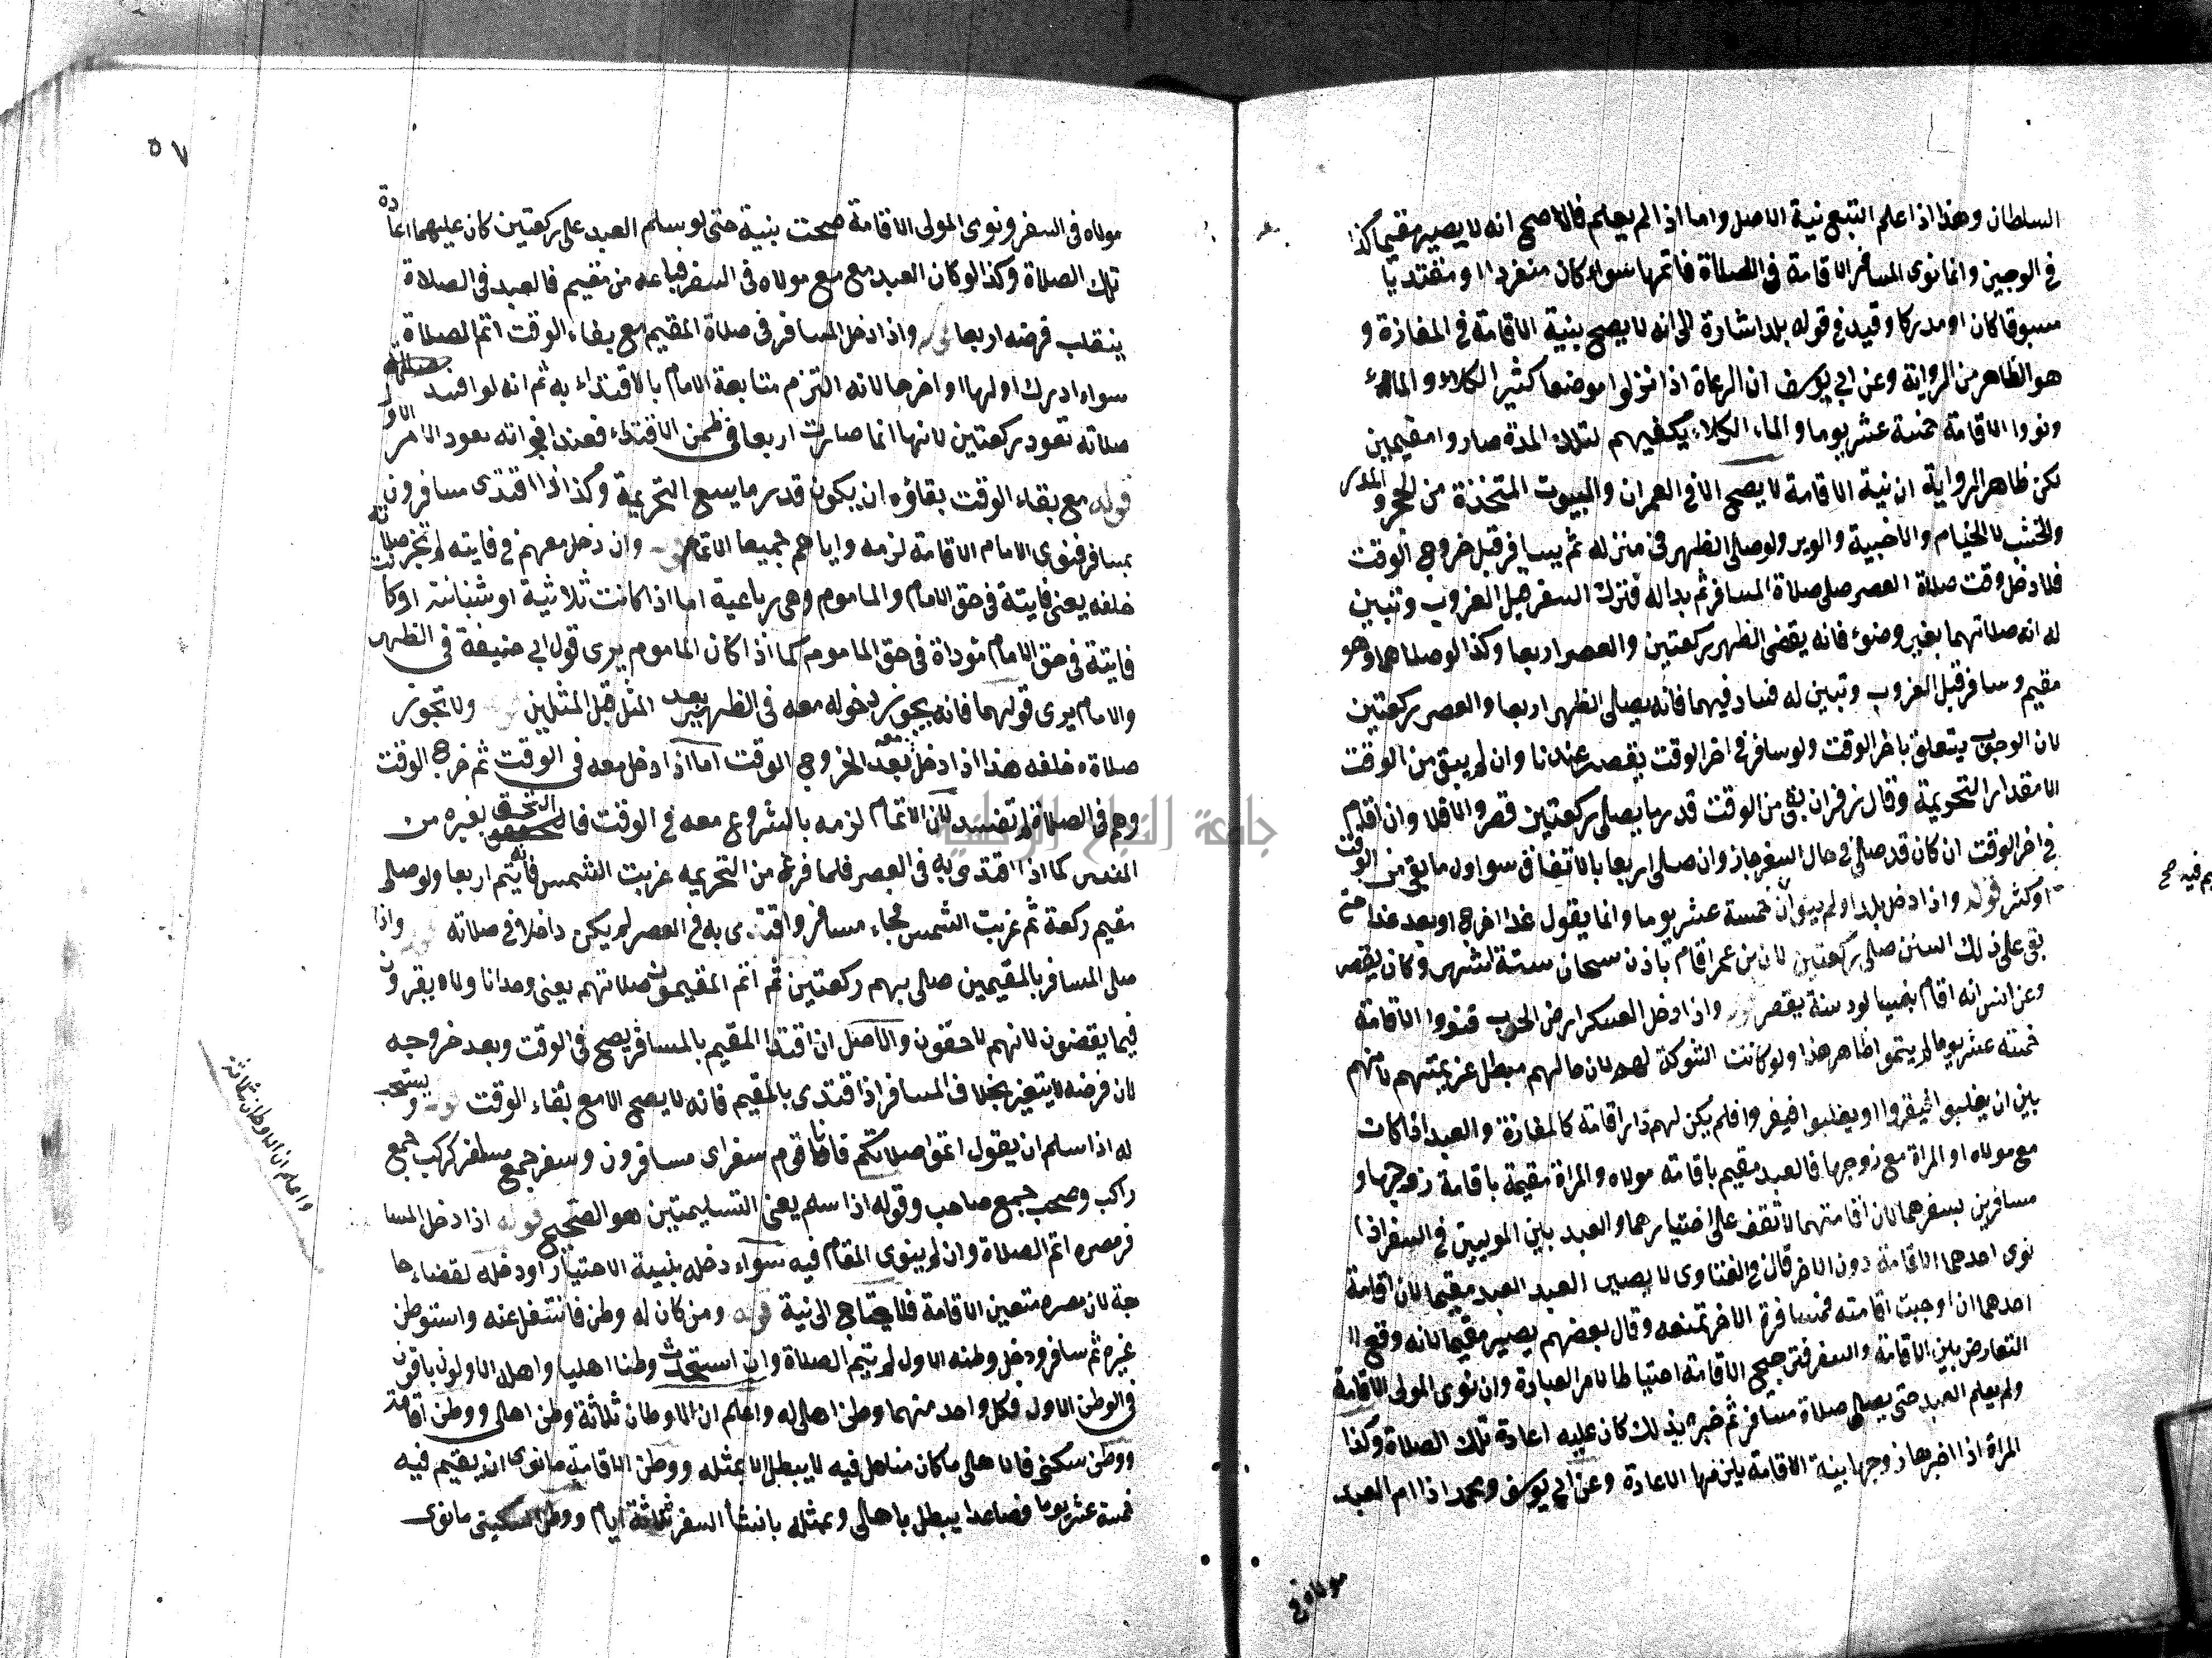 السلطان وهذا اذا علم التبع نية الاصل واما اذا لم يعلم فالاصح انه لا يصير مقيما كذا
في الوجيز وانما نوى المسافر الاقامة في الصلاة فاتمها سواء كان منفردا او مقتديا
مسبوقا كان او مدركا وقيد في قوله بلد اشارة الى انه لا يصح بنية الاقامة في المفازة و
هو الظاهر من الرواية وعن ابي يوسف ان الرعاة اذا نزلوا موضعا كثير الكلاء والماء
ونووا الاقامة خمسة عشر يوما والماء والكلاء يكفيهم لتلك المدة صاروا مقيمين
لكن ظاهر الرواية ان نية الاقامة لا يصح الا في العمران والبيوت المتخذة من الحجر والمدر
والخشب لا الخيام والاخبية والوبر ولو صلى الظهر في منزله ثم يسافر قبل خروج الوقت
فلما دخل وقت صلاة العصر صلى صلاة المسافر ثم بدا له فترك السفر قبل الغروب وتبين
له انه صلاتهما بغير وضوء فانه يقضى الظهر ركعتين والعصر اربعا وكذا لو صلاهما وهو
مقيم وسافر قبل الغروب وتبين له فساد فيهما فانه يصلى الظهر اربعا والعصر ركعتين
لان الوجوب يتعلق باخر الوقت ولو سافر في اخر الوقت يقصر عندنا وان لم يبق من الوقت
الا مقدار التحريمة وقال زفر ان بقى من الوقت قدر ما يصلى ركعتين قصر والا فلا وان اقام
في اخر الوقت ان كان قد صلى في حال السفر جاز وان صلى اربعا بالاتفاق سوا اول ما بقي من الوقت
او كثر قوله واذا دخل بلدا ولم ينو ان خمسة عشر يوما وانما يقول غدا اخرج او بعد غد حتى
بقى على ذلك السنن صلى ركعتين لان بن عمر اقام باذن سحان ستة اشهر وكان يقصر
وعن انس انه اقام بنسيا لود سنة يقصر قوله واذا دخل العسكر ارض الحرب فنووا الاقامة
خمسة عشر يوما لم يتموا ظاهر هذا ولو كانت الشوكة لهم لان حالهم مبطل عزيمتهم لانهم
بين ان يغلبوا فيقروا او يغلبوا فيفروا فلم يكن لهم دار اقامة كالمفازة والعبد اذا كان
مع مولاه او المراة مع زوجها فالعبد مقيم باقامة مولاه والمراة مقيمة باقامة زوجها و
مسافرين بسفرهما لان اقامتهما لا تقف على اختيارهما والعبد بين الموليين في السفر اذا
نوى احدهما الاقامة دون الاخر قال في الفتاوى لا يصير العبد العبد مقيما لان اقامة
احدهما ان اوجبت اقامته فمسافرة الاخر تمنعه وقال بعضهم يصير مقيما لانه وقع ال
التعارض بين الاقامة والسفر فترجيح الاقامة احتياطا لامر العبادة وان نوى المولى الاقامة
ولم يعلم العبد حتى يصلى صلاة مسافر ثم خبره بذلك كان عليه اعادة تلك الصلاة وكذا
المراة اذا اخبرها زوجها بنية الاقامة يلزمها الاعادة وعن ابي يوسف ومحمد اذا ام العبد
مولاه في
٥٧
مولاه في السفر ونوى المولى الاقامة صحت بنية حتى لو سلم العبد على ركعتين كان عليهما اعادة
تلك الصلاة وكذا لو كان العبد مع مع مولاه في السفر فباعه من مقيم فالعبد في الصلاة
ينقلب فرضه اربعا قوله واذا دخل المسافر في صلاة المقيم مع بقاء الوقت اتم الصلاة
سواء ادرك اولها او اخرها لانه التزم متابعة الامام بالاقتداء به ثم انه لو افسد
صلاته تعود ركعتين لانها انما صارت اربعا في ظمن الاقتداء فعند فواته يعود الامر الاول
قوله مع بقاء الوقت بقاؤه ان يكون قدر ما يسع التحريمة وكذا اذا اقتدى مسافرون
بمسافر فنوى الامام الاقامة لزمه واياهم جميعا الاتمام قوله وان دخل معهم في فايته لم تجز صلاته
خلفه يعنى فايتة في حق الامام والماموم وهى رباعية اما اذا كانت ثلاثية او ثنائية او كانت
فايتة في حق الامام مؤداة في حق الماموم كما اذا كان الماموم يرى قول ابي حنيفة في الظهر
والامام يرى قولهما فانه يجوز دخوله معه في الظهر بعد المثل قبل المثلين قوله ولا تجوز
صلاته خلفه هذا اذا دخل معه بعد الخروج الوقت اما اذا دخل معه في الوقت ثم خرج الوقت
وهم في الصلاة لم تفسد لان الاتمام لزمه بالشروع معه في الوقت فالتحق بغيره من
المقيمين كما اذا اقتدى به في العصر فلما فرغ من التحريمه غربت الشمس فانه يتم اربعا ولو صلى
مقيم ركعة ثم غربت الشمس فجاء مسافر واقتدى به في العصر لم يكن داخلا في صلاته قوله واذا
صلى المسافر بالمقيمين صلى بهم ركعتين ثم اتم المقيمون صلاتهم يعنى وحدانا ولا يقرون
فيما يقضون لانهم لاحقون والاصل ان اقتدا المقيم بالمسافر يصح في الوقت وبعد خروجه
لان فرضه لا يتغير بخلاف المسافر اذا اقتدى بالمقيم فانه لا يصح الا مع بقاء الوقت قوله ويستحب
له اذا سلم ان يقول اتموا صلاتكم فانا قوم سفر اى مسافرون وسفر جمع مسافر كركب جمع
راكب وصحب جمع صاحب وقوله اذا سلم يعنى التسليمتين هو الصحيح قوله اذا دخل المسا
فر مصره اتم الصلاة وان لم ينوى المقام فيه سواء دخله بنية الاختيار او دخله لقضاء حا
جة لان مصره متعين الاقامة فلا يحتاج الى نية قوله ومن كان له وطن فانتقل عنه واستوطن
غيره ثم سافر ودخل وطنه الاول لم يتم الصلاة وان استحدث وطنا اهليا واهله الاولون باقون
في الوطن الاول فكل واحد منهما وطن اهلى له واعلم ان الاوطان ثلاثة وطن اهلى ووطن اقامة
ووطن سكنى فالاهلى ما كان متاهل فيه لا يبطل الا بمثله ووطن الاقامة ما نوى ان يقيم فيه
خمسة عشر يوما فصاعدا يبطل باهلى وبمثله بانشأ السفر ثلاثة ايام ووطن السكنى ما نوى
واعلم ان الاوطان ثلاثة
جامعة النجاح الوطنية